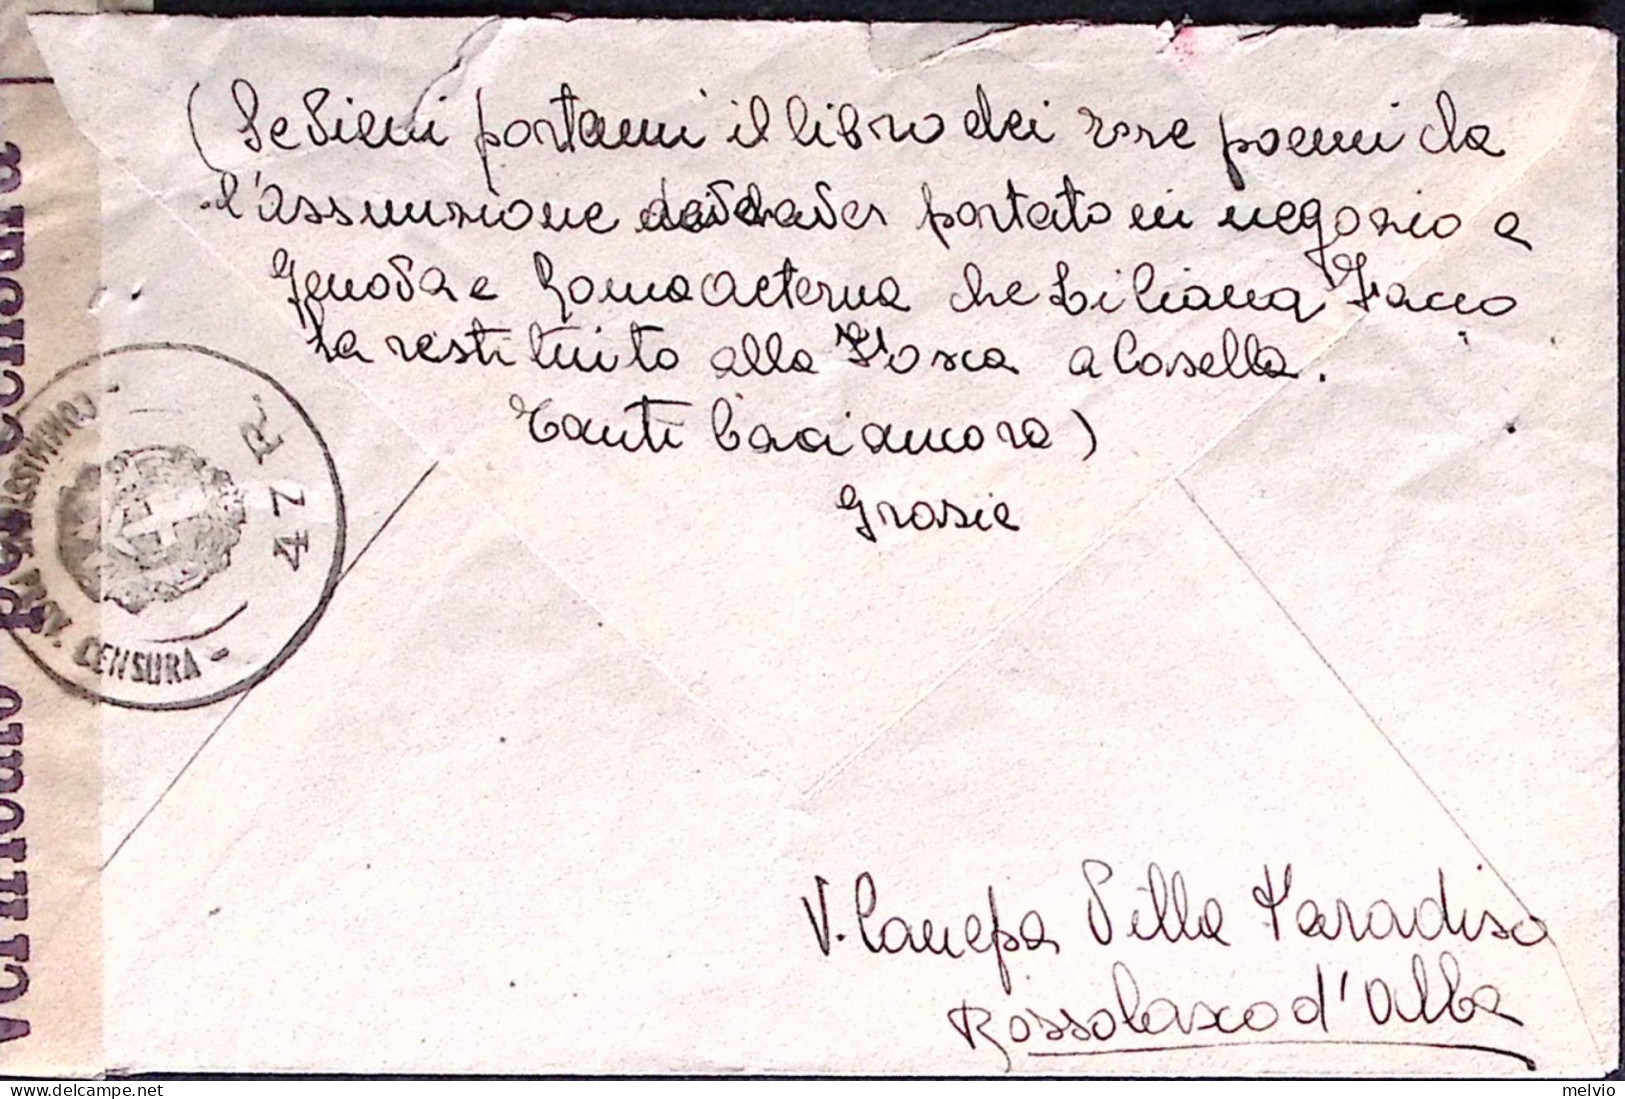 (Se vieni portami il libro dei tre poemi da
l'assunzione d'aver portato in negozio a
Genova e Roma aeterna che Liliana Facco
ha restituito alla Tosca a Casella.
Tanti baci ancora)
Grazie
V. Canepa Villa Paradiso
Rossolasco d'Alba
Verificato per censura
COMMISSIONE PROV. CENSURA -
47 R.
melvio